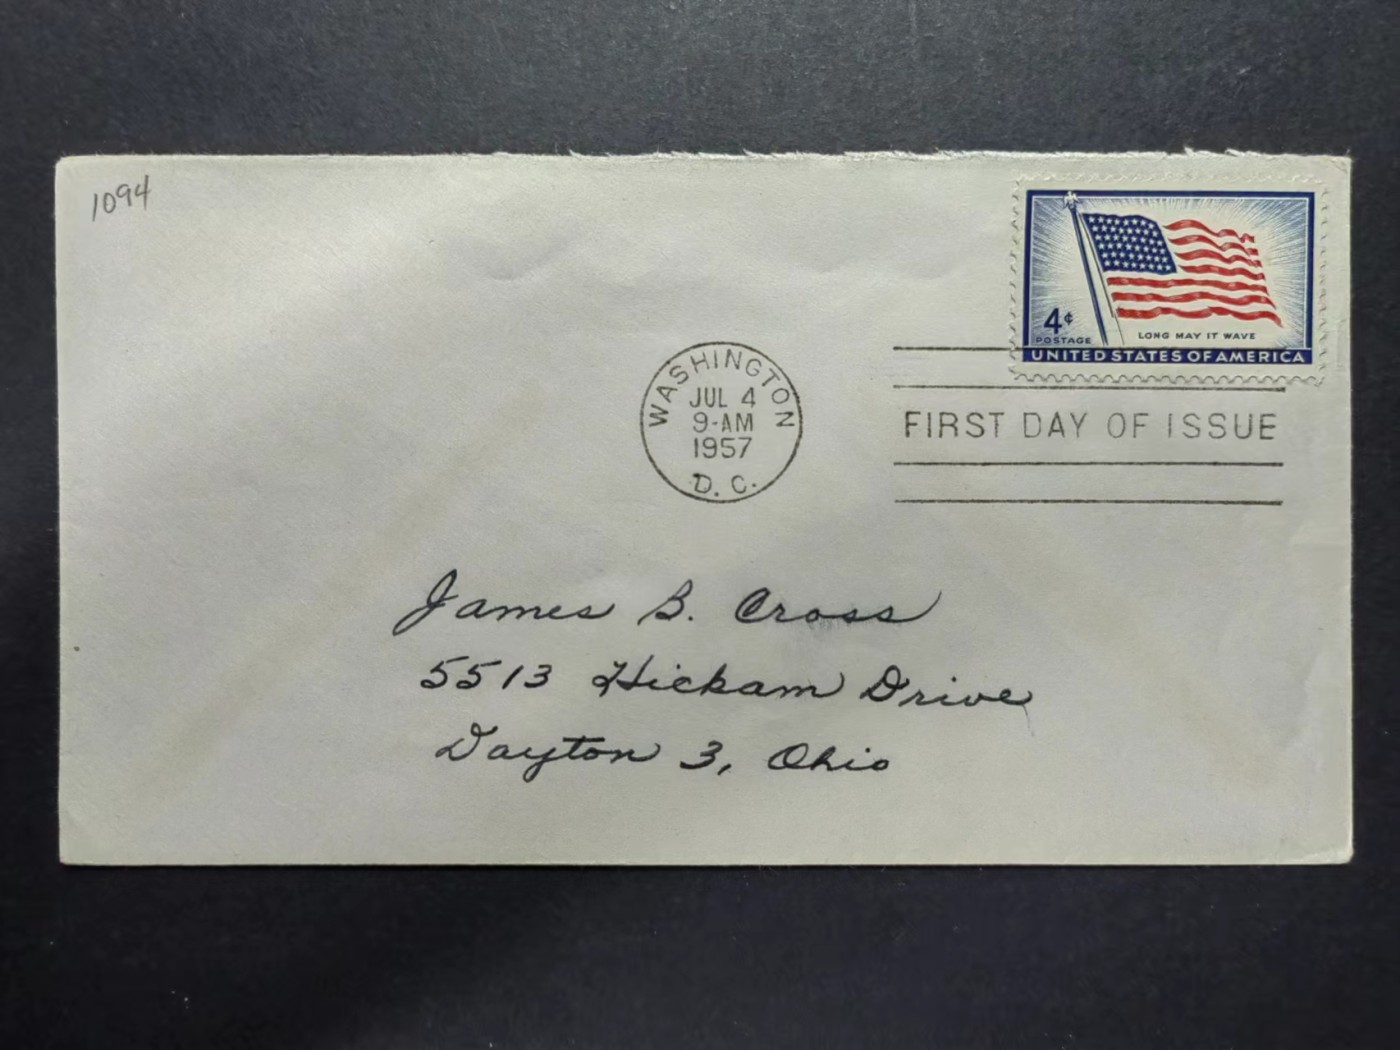 1094
4¢
POSTAGE
LONG MAY IT WAVE
UNITED STATES OF AMERICA
WASHINGTON
JUL 4
9-AM
1957
D. C.
FIRST DAY OF ISSUE
James B. Cross
5513 Hickam Drive
Dayton 3, Ohio